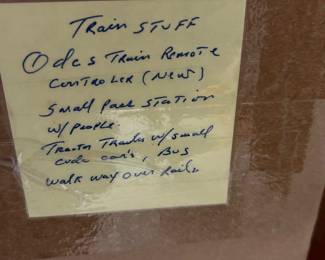 Train STUFF
① dcs Train Remote
CONTROLER (NEW)
Small Park Station
w/ people.
Tracks w/ small
code car's, Bus
walk way over Rails